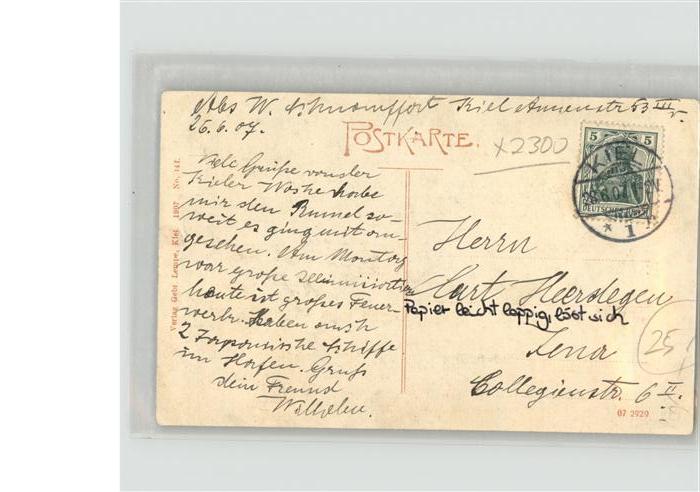 Abs W. Kiel Annenstr 53 III r.
26.6.07.
POSTKARTE.
x2300
Viele Grüße von der
Kieler Woche habe
mir den Rummel so-
weit es ging mit an-
gesehen. Am Montag
war große Illumination
heute ist großes Feuer-
werk. Haben auch
2 Japanische Schiffe
im Hafen. Gruß
dein Freund
Wilhelm.
Verlag Gebr Lempe, Kiel 1907 No. 141.
5 5
DEUTSCHES REICH
KIEL
* 1
Herrn
Kurt
Papier leicht lappig, löst sich
Jena
Collegienstr. 6 II.
25
07 2929